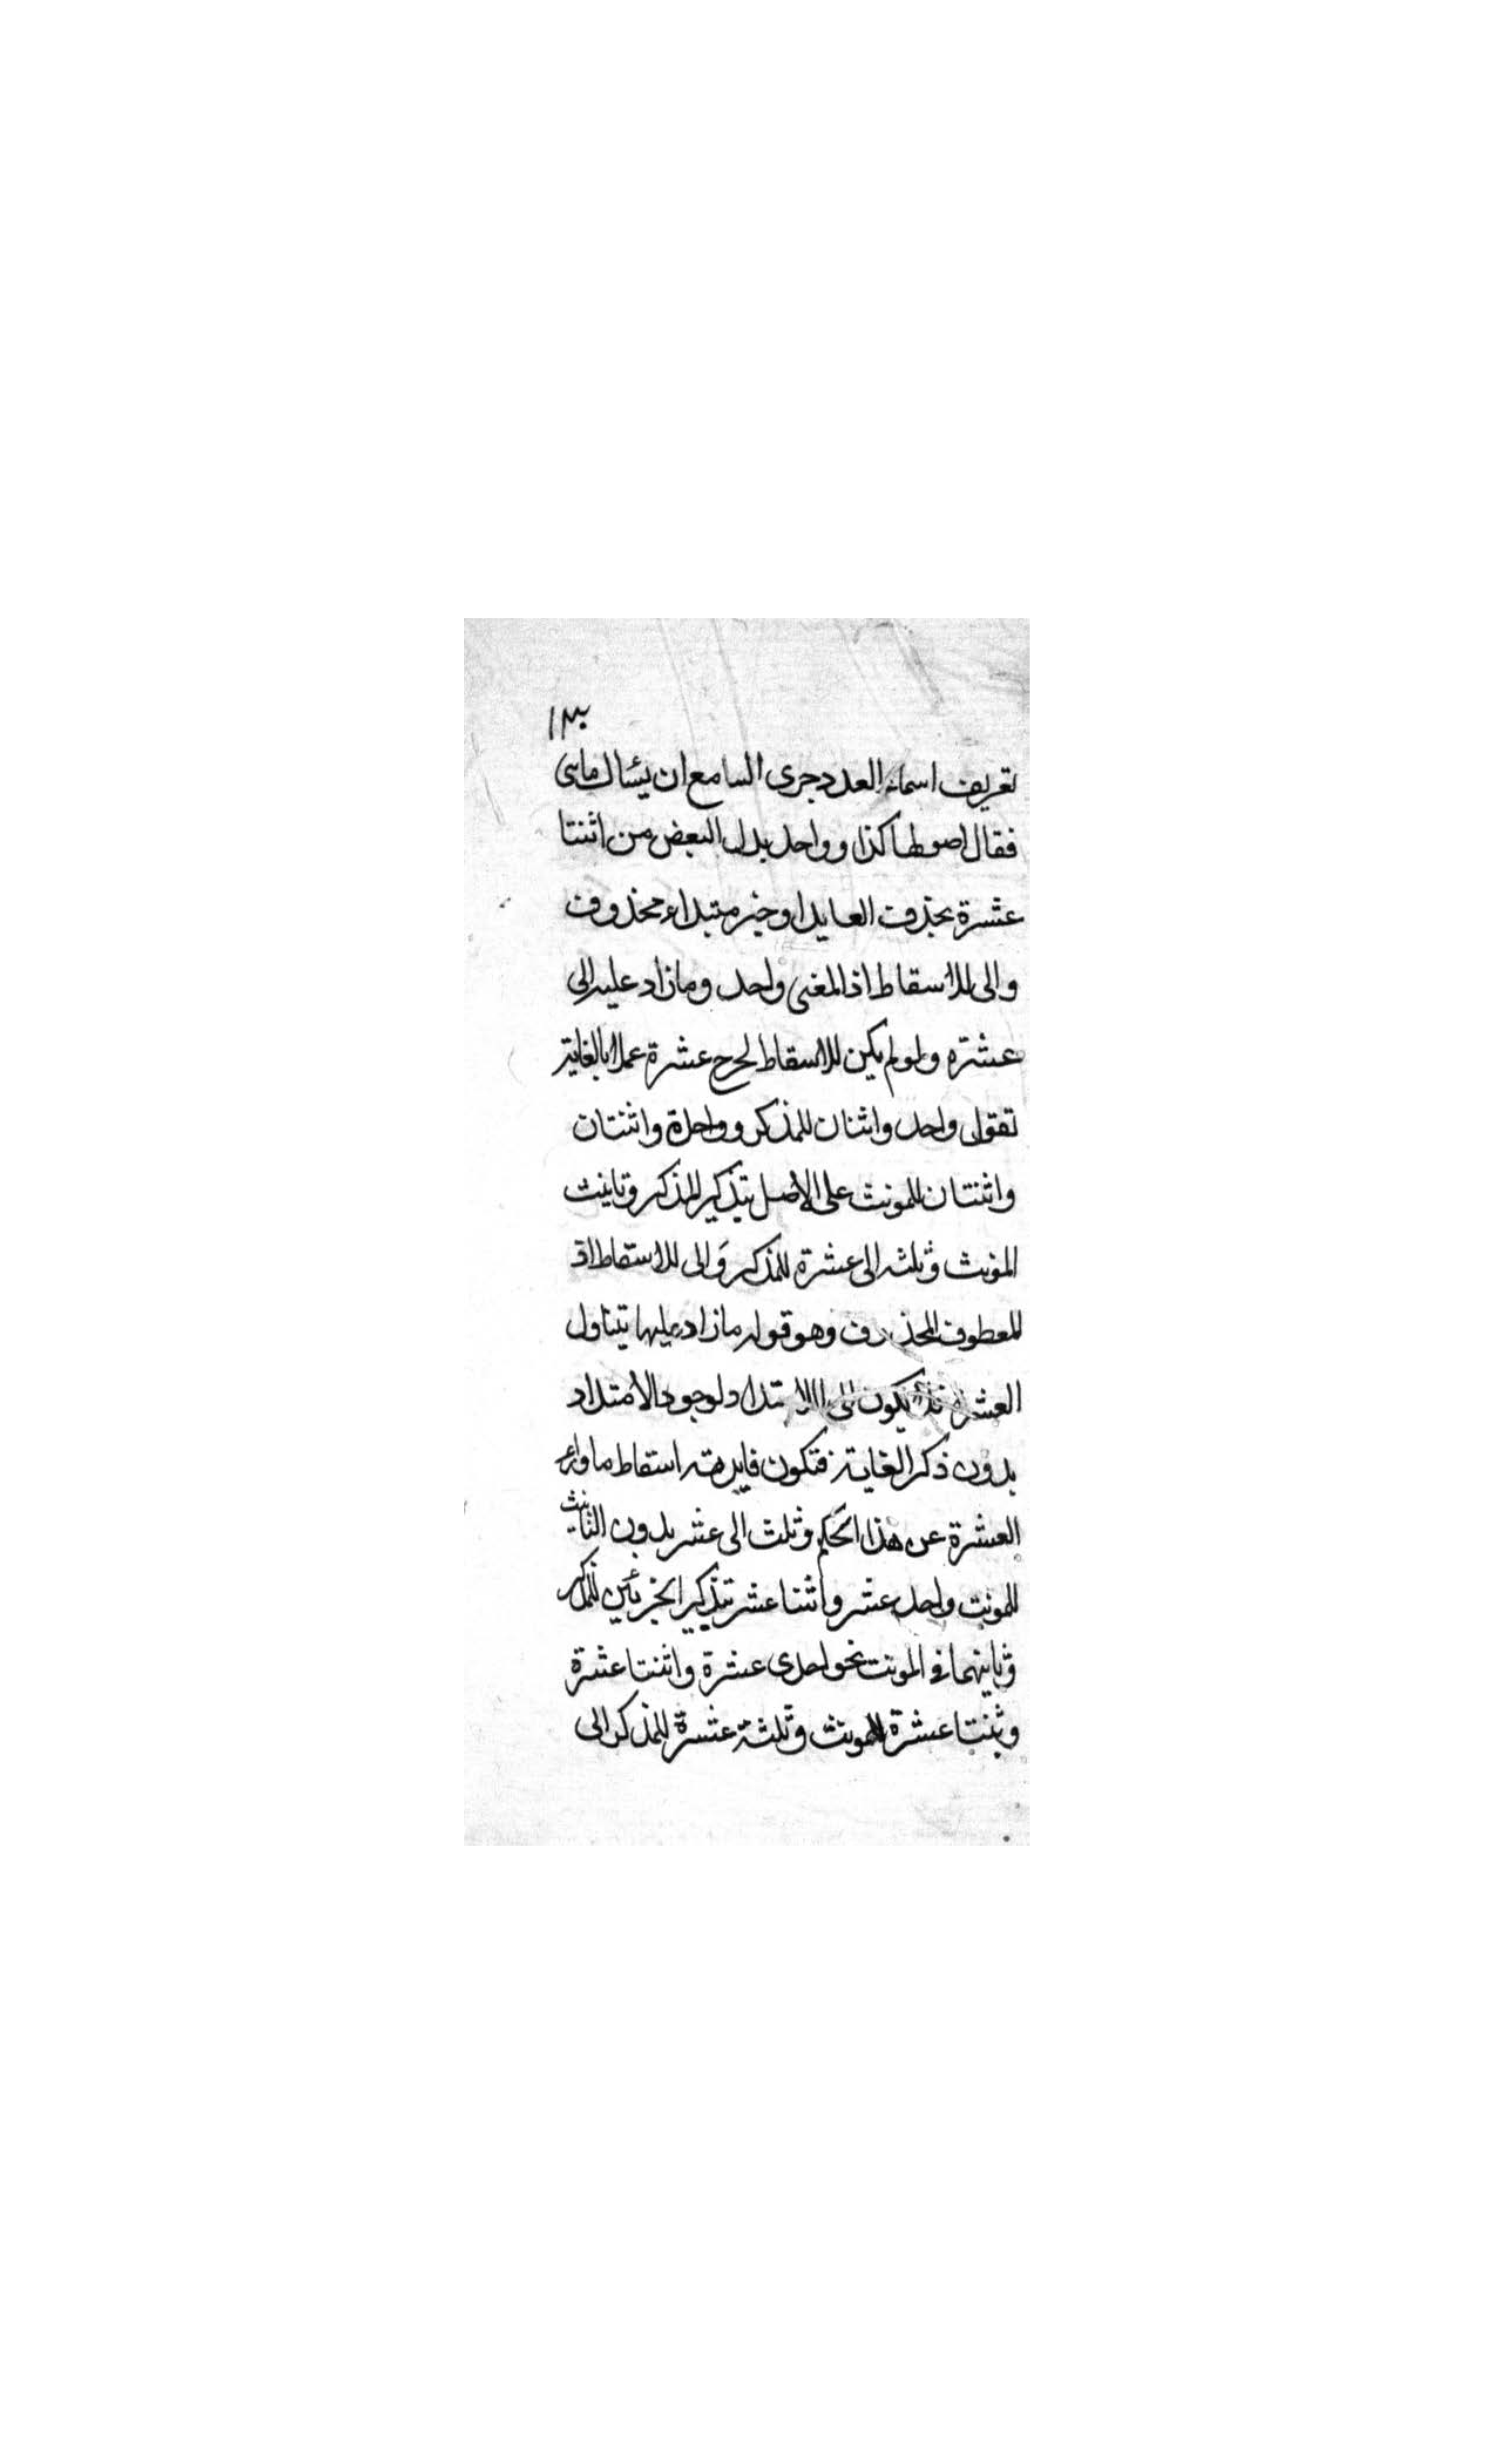 ١٣٠
تعريف اسماء العدد جرى السامع ان يسٔال ماهى
فقال اصولها كذا وواحد بدل البعض من اثنتا
عشرة بحذف العايد او خبر مبتداء محذوف
والى للاسقاط اذ المعنى واحد وما زاد عليه الى
عشره ولو لم يكن للاسقاط لخرج عشرة عملا بالغاية
تقول واحد واثنان للمذكر وواحدة واثنتان
واثنتان للمونث على الاصل بتذكير المذكر وتانيث
المونث وثلثه الى عشرة للمذكر والى للاسقاط اذ
المعطوف المحذوف وهو قوله ما زاد عليها يتناول
العشرة يكون الى الامتداد لوجود الامتداد
بدون ذكر الغاية فتكون فايدته اسقاط ما وراء
العشرة عن هذا الحكم وثلث الى عشر بدون التانيث
للمونث واحد عشر واثنا عشر بتذكير الجزئين للمذكر
وتانيثهما فى المونث نحو احدى عشرة واثنتا عشرة
وثنتا عشرة للمونث وثلثة عشرة للمذكر الى